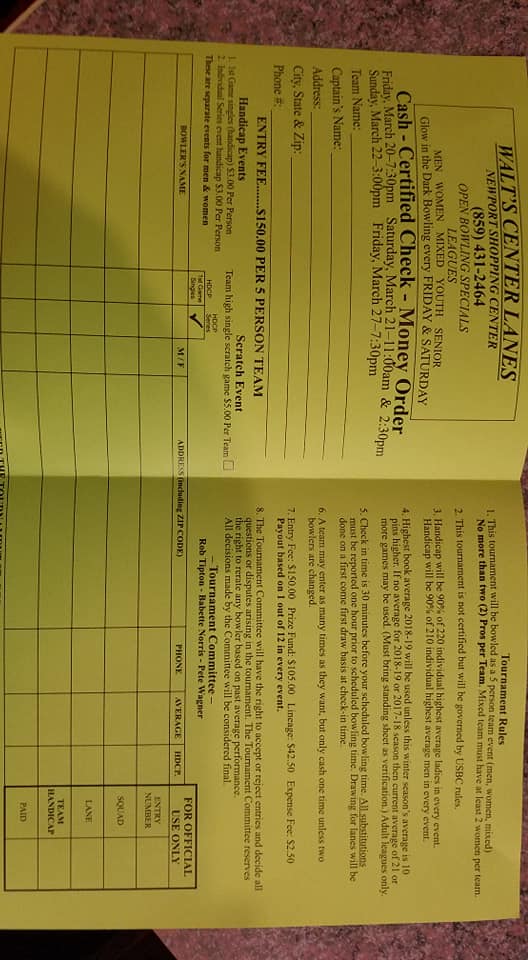 WALT'S CENTER LANES
NEWPORT SHOPPING CENTER
(859) 431-2464
OPEN BOWLING SPECIALS
LEAGUES
MEN WOMEN MIXED YOUTH SENIOR
Glow in the Dark Bowling every FRIDAY & SATURDAY
Cash - Certified Check - Money Order
Friday, March 20–7:30pm Saturday, March 21–11:00am & 2:30pm
Sunday, March 22–3:00pm Friday, March 27–7:30pm
Team Name:
Captain's Name:
Address:
City, State & Zip:
Phone #:
ENTRY FEE........$150.00 PER 5 PERSON TEAM
Handicap Events
1. 1st Game singles (handicap) $3.00 Per Person
2. Individual Series event handicap $3.00 Per Person
These are separate events for men & women
Scratch Event
Team high single scratch game $5.00 Per Team
HDCP
1st Game
Singles
HDCP
Series
BOWLER'S NAME M/F ADDRESS (including ZIP CODE) PHONE AVERAGE HDCP.
Tournament Rules
1. This tournament will be bowled as a 5 person team event (men, women, mixed)
No more than two (2) Pros per Team. Mixed team must have at least 2 women per team.
2. This tournament is not certified but will be governed by USBC rules.
3. Handicap will be 90% of 220 individual highest average ladies in every event.
Handicap will be 90% of 210 individual highest average men in every event.
4. Highest book average 2018-19 will be used unless this winter season's average is 10
pins higher. If no average for 2018-19 or 2017-18 season then current average of 21 or
more games may be used. (Must bring standing sheet as verification.) Adult leagues only.
5. Check in time is 30 minutes before your scheduled bowling time. All substitutions
must be reported one hour prior to scheduled bowling time. Drawing for lanes will be
done on a first come first draw basis at check-in time.
6. A team may enter as many times as they want, but only cash one time unless two
bowlers are changed.
7. Entry Fee: $150.00 Prize Fund: $105.00 Lineage: $42.50 Expense Fee: $2.50
Payout based on 1 out of 12 in every event.
8. The Tournament Committee will have the right to accept or reject entries and decide all
questions or disputes arising in the tournament. The Tournament Committee reserves
the right to rerate any bowler based on past average performance.
All decisions made by the Committee will be considered final.
– Tournament Committee –
Rob Tipton - Babette Norris - Pete Wagner
FOR OFFICIAL
USE ONLY
ENTRY
NUMBER
SQUAD
LANE
TEAM
HANDICAP
PAID